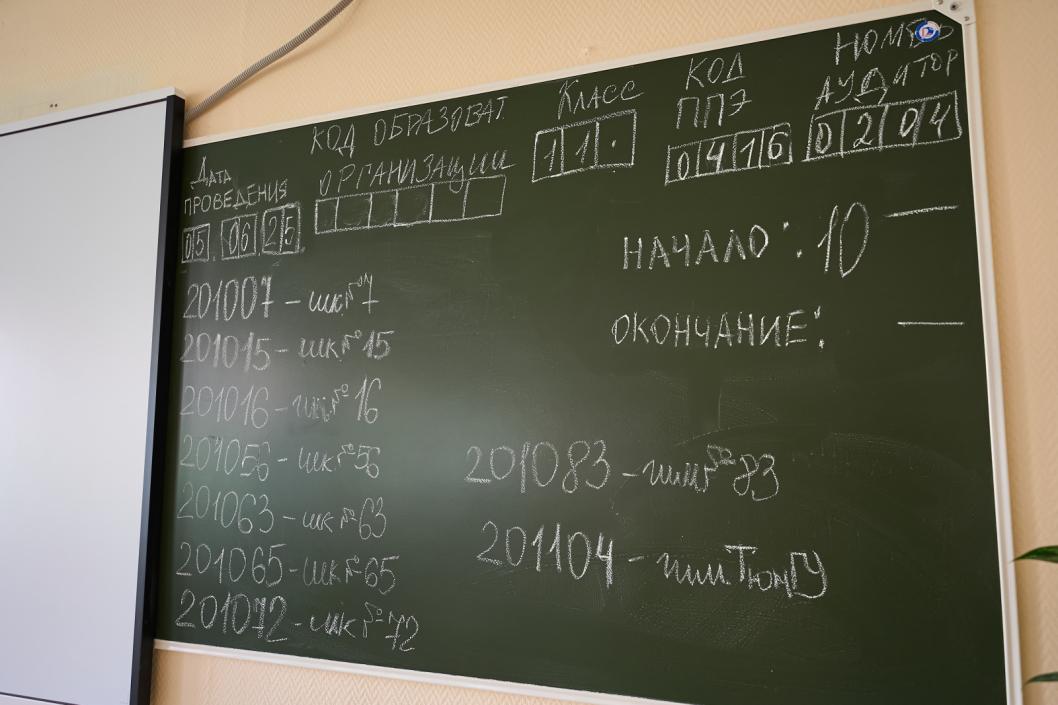 ДАТА
ПРОВЕДЕНИЯ
05. 06. 25.
КОД ОБРАЗОВАТ.
ОРГАНИЗАЦИИ
КЛАСС
11.
КОД
ППЭ
0416
НОМЕР
АУДИТОР
0204
НАЧАЛО: 10 —
ОКОНЧАНИЕ: —
201007 - шк №7
201015 - шк №15
201016 - гим. №16
201056 - шк №56
201063 - шк №63
201065 - шк №65
201072 - шк №72
201083 - гим №83
201104 - гим. ТюмГУ